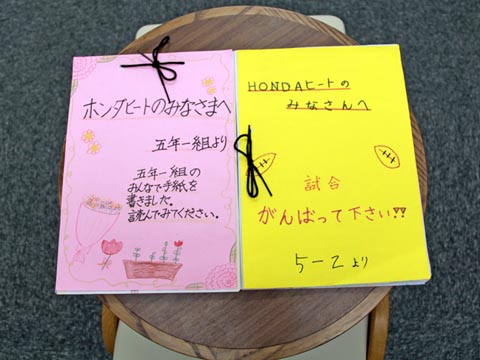 ホンダヒートのみなさまへ
五年一組より
五年一組の
みんなで手紙を
書きました。
読んでみてください。
HONDAヒートの
みなさんへ
試合
がんばって下さい!!
5-2より